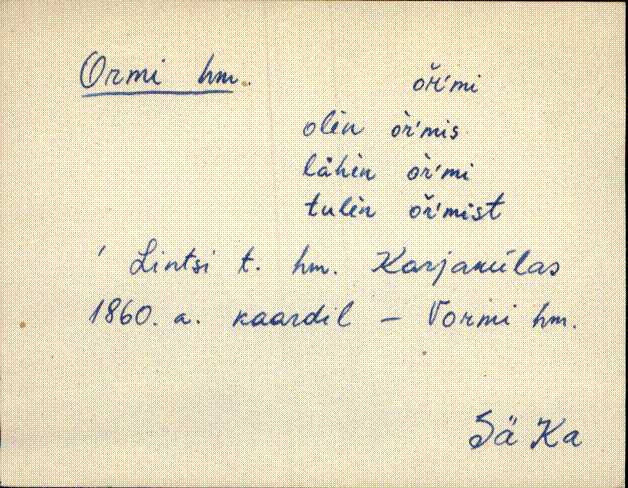 Ormi hm.
or̆'mi
olèn òr̆'mis
lähèn òr̆'mi
tulèn or̆'mist
' Lintsi t. hm. Karjakülas
1860. a. kaardil – Vormi hm.
Sä Ka